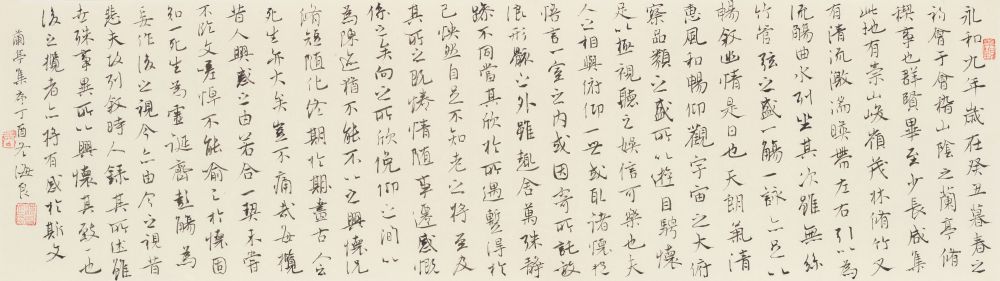 永和九年歲在癸丑暮春之
初會于會稽山陰之蘭亭脩
禊事也群賢畢至少長咸集
此地有崇山峻嶺茂林脩竹又
有清流激湍暎帶左右引以為
流觴曲水列坐其次雖無絲
竹管弦之盛一觴一詠亦足以
暢敘幽情是日也天朗氣清
惠風和暢仰觀宇宙之大俯
察品類之盛所以遊目騁懷
足以極視聽之娛信可樂也夫
人之相與俯仰一世或取諸懷抱
悟言一室之內或因寄所託放
浪形骸之外雖趣舍萬殊靜
躁不同當其欣於所遇暫得於
己怏然自足不知老之將至及
其所之既惓情隨事遷感慨
係之矣向之所欣俛仰之間以
為陳迹猶不能不以之興懷況
脩短隨化終期於期盡古人云
死生亦大矣豈不痛哉每攬
昔人興感之由若合一契未嘗
不臨文嗟悼不能喻之於懷固
知一死生為虛誕齊彭殤為
妄作後之視今亦由今之視昔
悲夫故列敘時人錄其所述雖
世殊事異所以興懷其致一也
後之攬者亦將有感於斯文
蘭亭集序丁酉海良